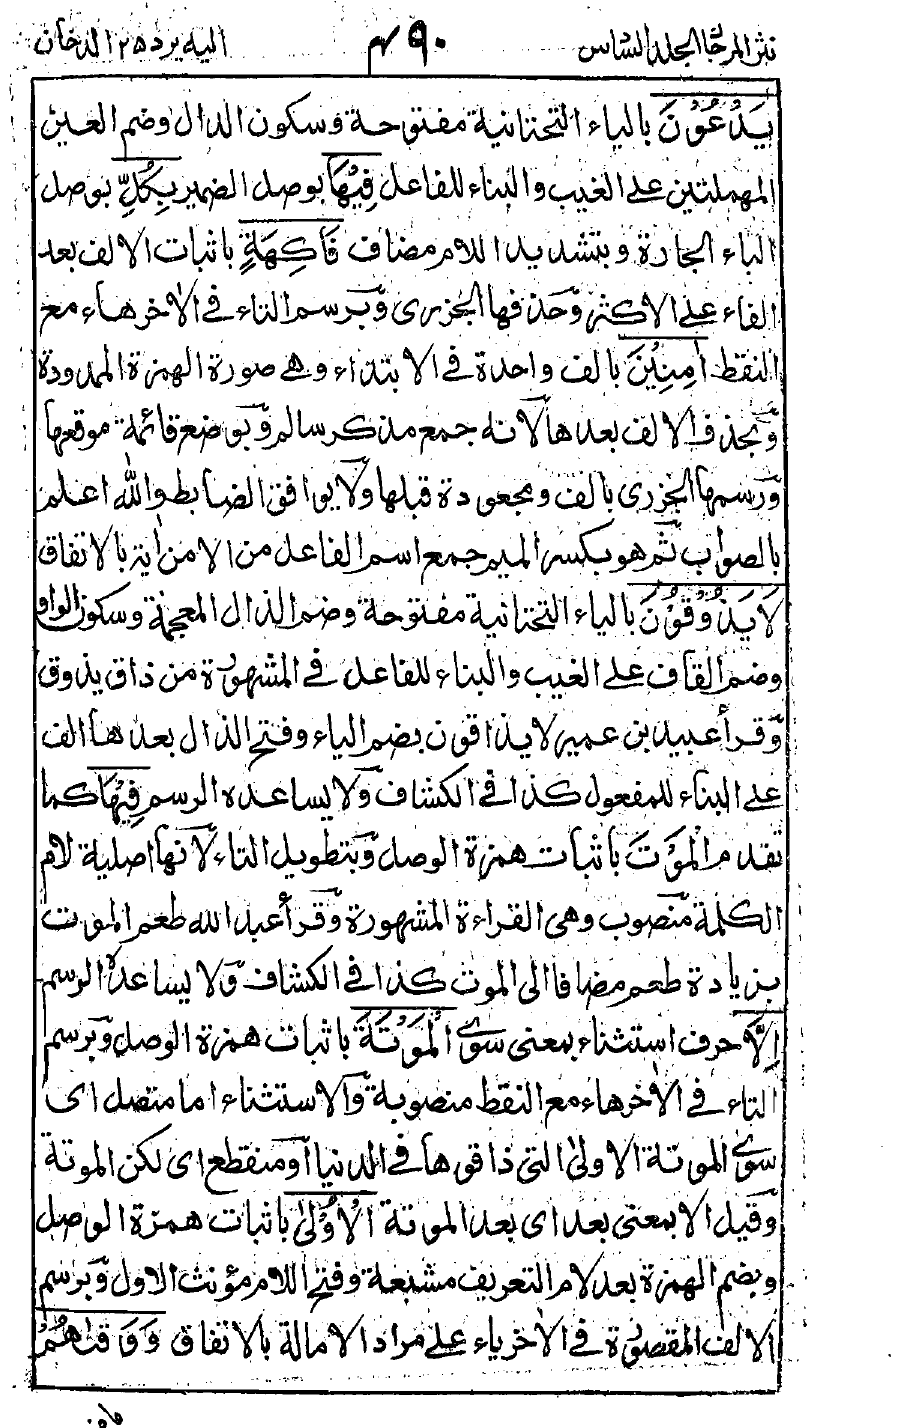 نثر المرجان الجلد السادس ٤٩٠ اليه يرد ٢٥ الدخان
يَدْعُوْنَ بالياء التحتانية مفتوحة وسكون الدال وضم العين
المهملتين على الغيب والبناء للفاعل فِيْهَا بوصل الضمير بِكُلِّ بوصل
الباء الجارة وبتشديد اللام مضاف فَاكِهَةٍ باثبات الالف بعد
الفاء على الاكثر وحذفها الجزرى وبرسم التاء فى الاخر هاء مع
النقط اٰمِنِيْنَ بالف واحدة فى الابتداء وهى صورة الهمزة الممدودة
وبحذف الالف بعدها لانه جمع مذكر سالم وبوضع قائمة موقعها
ورسمها الجزرى بالف ومجعودة قبلها ولا يوافق الضابط والله اعلم
بالصواب ثم هو بكسر الميم جمع اسم الفاعل من الامن اية بالاتفاق
لَا يَذُوْقُوْنَ بالياء التحتانية مفتوحة وضم الذال المعجمة وسكون الواو
وضم القاف على الغيب والبناء للفاعل فى المشهورة من ذاق يذوق
وقرأ عبيد بن عمير لا يذاقون بضم الياء وفتح الذال بعدها الف
على البناء للمفعول كذا فى الكشاف ولا يساعده الرسم فِيْهَا كما
تقدم الْمَوْتَ باثبات همزة الوصل وبتطويل التاء لانها اصلية لام
الكلمة منصوب وهى القراءة المشهورة وقرأ عبد الله طعم الموت
بزيادة طعم مضافا الى الموت كذا فى الكشاف ولا يساعده الرسم
اِلَّا حرف استثناء بمعنى سوى الْمَوْتَةَ باثبات همزة الوصل وبرسم
التاء فى الاخر هاء مع النقط منصوبة والاستثناء اما متصل اى
سوى الموتة الاولى التى ذاقوها فى الدنيا او منقطع اى لكن الموتة
وقيل الا بمعنى بعد اى بعد الموتة الْاُوْلٰى باثبات همزة الوصل
وبضم الهمزة بعد لام التعريف مشبعة وفتح اللام مؤنث الاول وبرسم
الالف المقصورة فى الاخر ياء على مراد الامالة بالاتفاق وَوَقٰىهُمْ